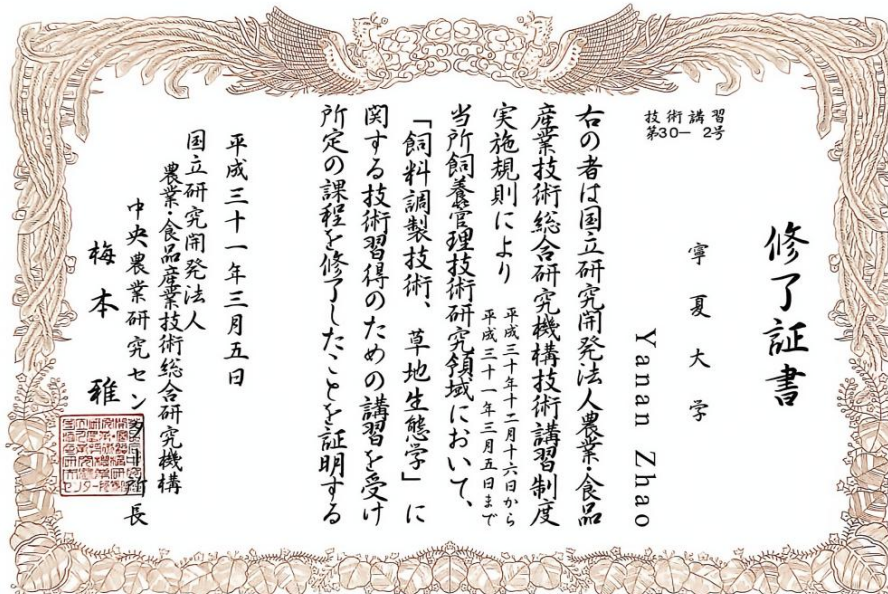 修了証書
技術講習
第30― 2号
寧夏大学
Yanan Zhao
右の者は国立研究開発法人農業・食品
産業技術総合研究機構技術講習制度
実施規則により
平成三十年十二月十六日から
平成三十一年三月五日まで
当所飼養管理技術研究領域において、
「飼料調製技術、草地生態学」に
関する技術習得のための講習を受け
所定の課程を修了したことを証明する
平成三十一年三月五日
国立研究開発法人
農業・食品産業技術総合研究機構
中央農業研究センター所長
梅本雅